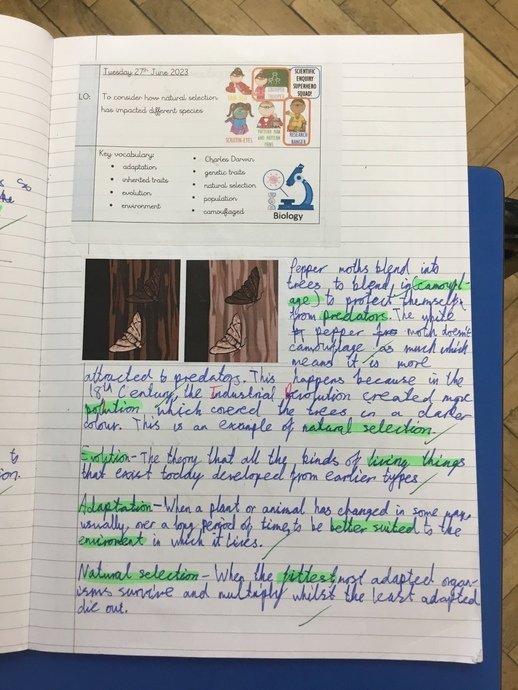 Tuesday 27th June 2023
LO: To consider how natural selection
has impacted different species
SCIENTIFIC
ENQUIRY
SUPERHERO
SQUAD!
SCRUTIN-EYES
PATTERN MAN
AND PATTERN
PANS
RESEARCH
RANGER
Key vocabulary:
• adaptation
• inherited traits
• evolution
• environment
• Charles Darwin
• genetic traits
• natural selection
• population
• camouflaged
Biology
Pepper moths blend into
trees to blend in (camoufl-
age) to protect themself
from predators. The white
pepper moth doesn't
camouflage as much which
means it is more
attracted to predators. This happens because in the
18th Century, the Industrial Revolution created more
polution which covered the trees in a darker
colour. This is an example of natural selection.
Evolution - The theory that all the kinds of living things
that exist today developed from earlier types
Adaptation - When a plant or animal has changed in some way,
usually, over a long period of time, to be better suited to the
enviroment in which it lives.
Natural selection - When the fittest most adapted organ-
isms survive and multiply whilst the least adapted
die out.